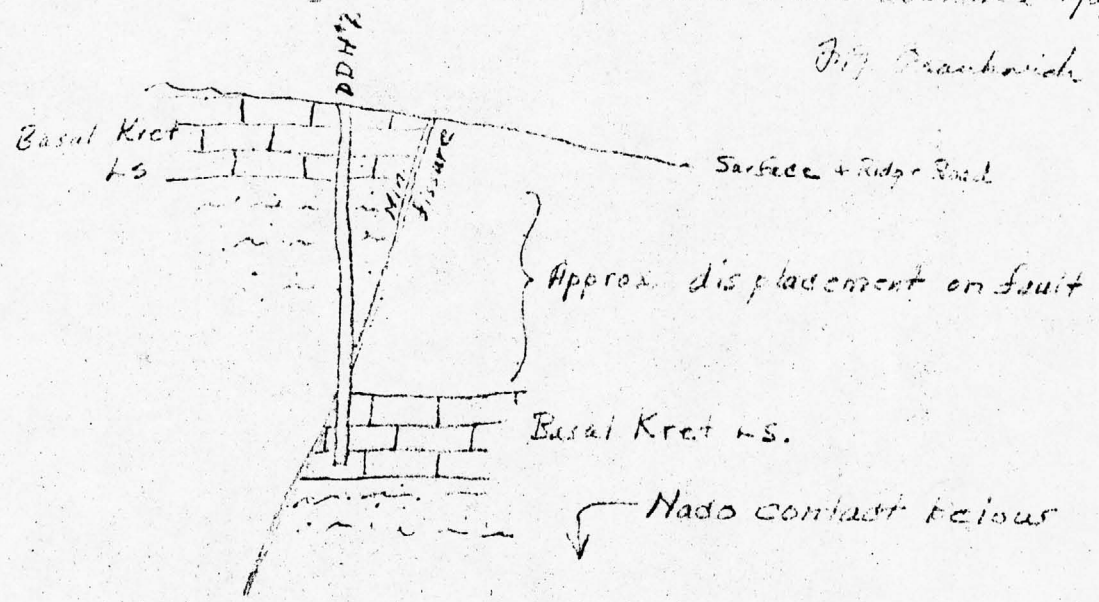 DDH #2
Basal Kret
Ls
Min.
fissure
Surface + Ridge Road
Approx. displacement on fault
Basal Kret Ls.
Nado contact below